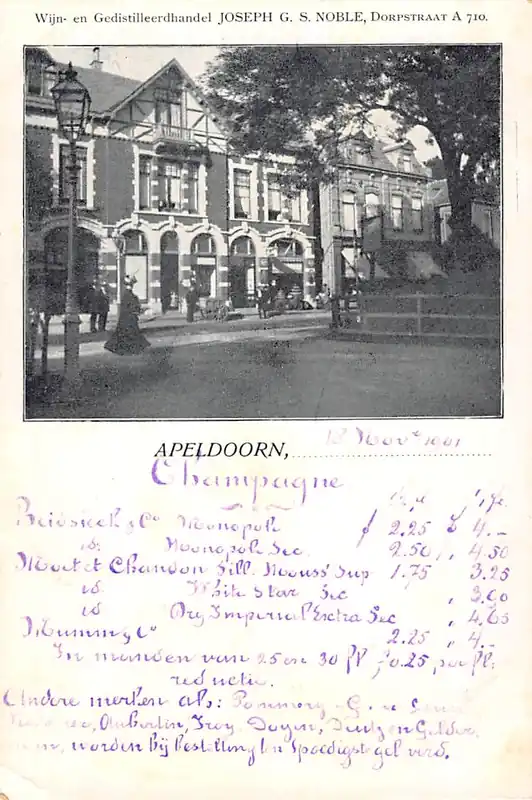 Wijn- en Gedistilleerdhandel JOSEPH G. S. NOBLE, DORPSTRAAT A 710.
APELDOORN, 18 Nov. 1901
Champagne
Heidsieck & Co Monopole f 2.25 f 4.–
id. Monopole Sec. 2.50 „ 4.50
Moet et Chandon Sill. Mouss Sup 1.75 3.25
id White Star Sec „ 3.00
id Dry Imperial Extra Sec „ 4.65
Mumm & Co 2.25 „ 4.–
In manden van 25 en 30 fl f 0.25 per fl.
reductie.
Andere merken als: Pommery
Aubertin, Irroy, Doyen, Deutz en Gelder,
worden bij bestelling ten spoedigste gel verd.